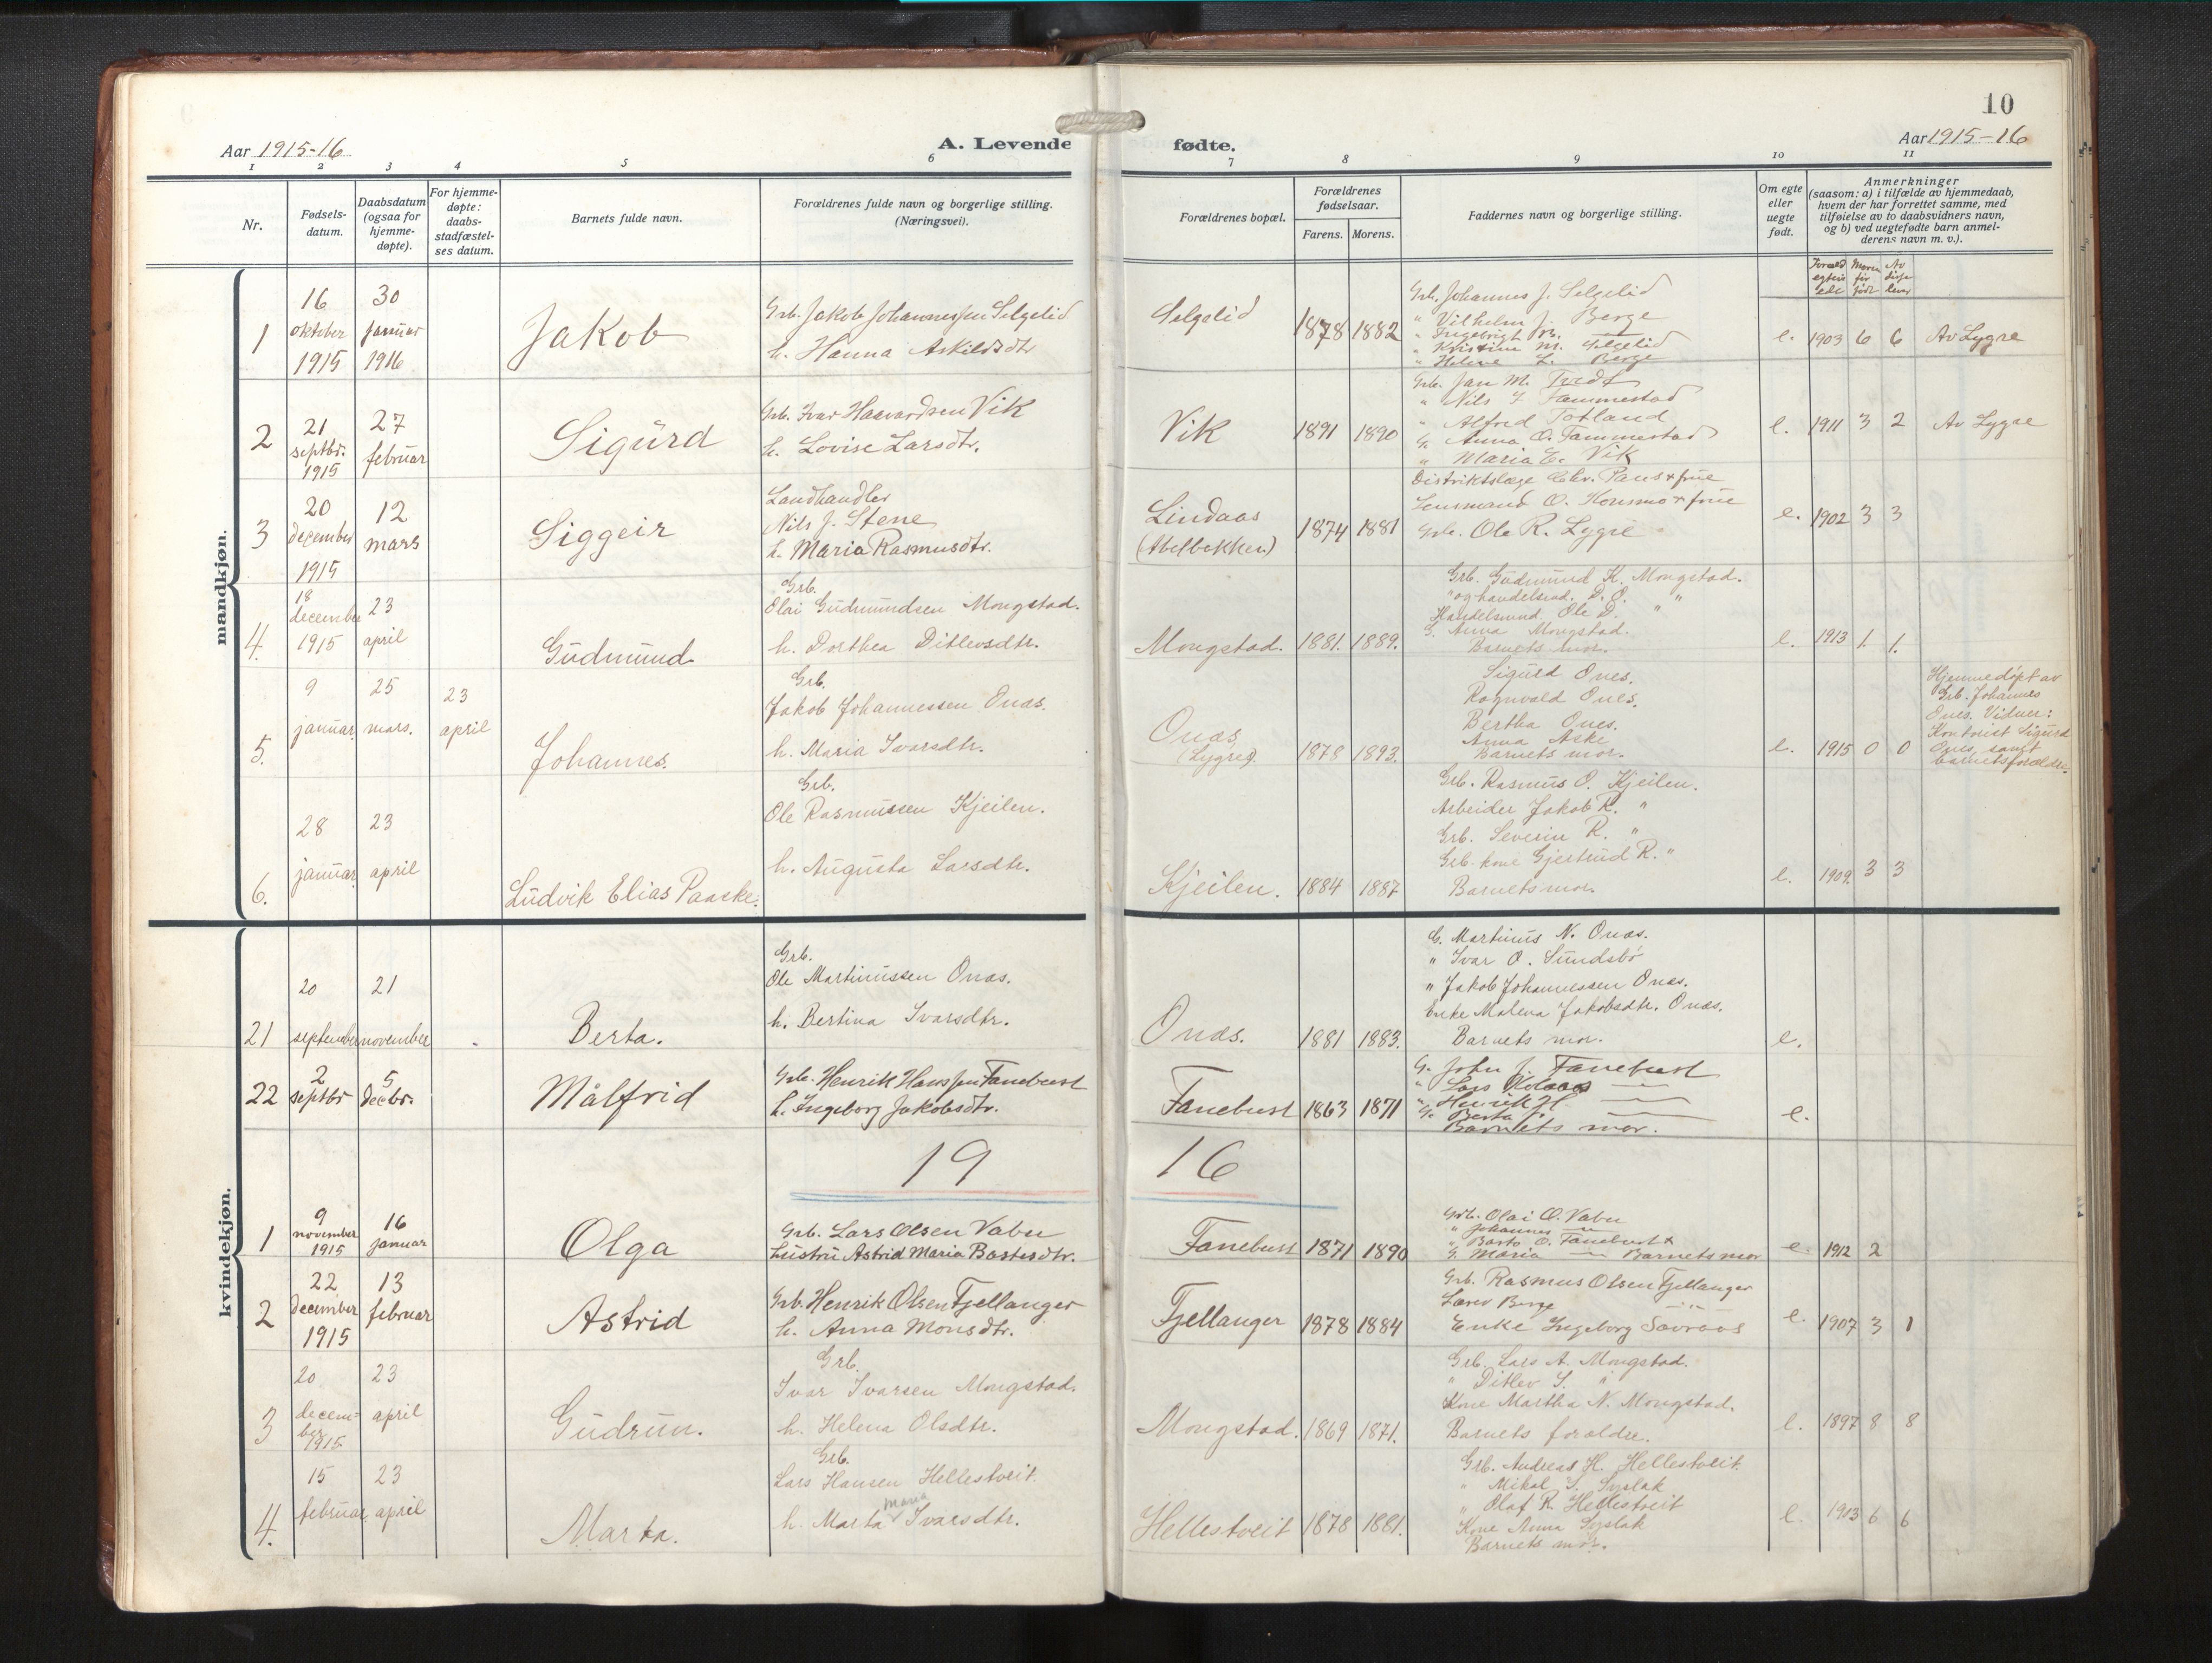 10
Aar 1915-16
A. Levende
fødte.
Aar 1915-16
1 2 3 4 5 6 7 8 9 10 11
Nr.
Fødsels-
datum.
Daabsdatum
(ogsaa for
hjemme-
døpte).
For hjemme-
døpte:
daabs-
stadfæstel-
ses datum.
Barnets fulde navn.
Forældrenes fulde navn og borgerlige stilling.
(Næringsvei).
Forældrenes bopæl.
Forældrenes
fødselsaar.
Farens. Morens.
Faddernes navn og borgerlige stilling.
Om egte
eller
uegte
født.
Anmerkninger
(saasom: a) i tilfælde av hjemmedaab,
hvem der har forrettet samme, med
tilføielse av to daabsvidners navn,
og b) ved uegtefødte barn anmel-
derens navn m. v.).
mandkjøn.
1
16
oktober
1915
30
januar
1916
Jakob
Grb. Jakob Johannessen Selgelid
h. Hanna Askildsdtr
Selgelid
1878 1882
Grb. Johannes J. Selgelid
" Vilhelm J. Berge
" Ingebrigt M. —
" Kristine M. Selgelid
" Helene L. Berge
e. 1903 6 6 Av Lygre
2
21
septbr.
1915
27
februar
Sigurd
Grb. Ivar Haavardsen Vik
h. Lovise Larsdtr.
Vik
1891 1890
Grb. Jan M.
" Nils J. Fammestad
" Alfred Totland
G. Anna O. Fammestad
" Maria E. Vik
e. 1911 3 2 Av Lygre
3
20
december
1915
12
mars
Siggeir
Landhandler
Nils J. Stene
h. Maria Rasmusdtr.
Lindaas
(Abelbakken)
1874 1881
Distriktslæge Chr. Paus + frue
Lensmand O. Konsmo + frue
Grb. Ole R. Lygre
e. 1902 3 3
4.
18
december
1915
23
april
Gudmund
Grb.
Olai Gudmundsen Mongstad.
h. Dorthea Ditlevsdtr.
Mongstad.
1881. 1889.
Grb. Gudmund K. Mongstad.
" og handelsmd. D. O. "
Handelsmnd. Ole D. "
G. Anna Mongstad.
Barnets mor.
e. 1913 1. 1.
5.
9
januar.
25
mars.
23
april
Johannes.
Grb.
Jakob Johannessen Onas.
h. Maria Ivarsdtr.
Onas
(Lygre).
1878 1893.
Sigurd Ones.
Ragnvald Ones.
Bertha Ones.
Anna Aske
Barnets mor.
e. 1915 0 0
Hjemmedøpt av
Grb. Johannes
Ones. Vidner:
Kontorist Sigurd
Ones, samt
barnets forældre.
6.
28
januar.
23
april
Ludvik Elias Paaske.
Grb.
Ole Rasmussen Kjeilen.
h. Augusta Larsdtr.
Kjeilen.
1884 1887
Grb. Rasmus O. Kjeilen.
Arbeider Jakob R. "
Grb. Severin R. "
Grb. kone Gjertrud R. "
Barnets mor.
e. 1909. 3 3
kvindekjøn.
21
20
september
21
november
Berta.
Grb.
Ole Martinussen Onas.
h. Bertina Ivarsdtr.
Onas.
1881 1883.
G. Martinus N. Onas.
" Ivar O. Sundsbø
" Jakob Johannessen Onas.
Enke Malena Jakobsdtr. Onas.
Barnets mor.
e.
22
2
septbr
5
decbr.
Målfrid
Grb. Henrik Hanssen Fanebust
h. Ingeborg Jakobsdtr.
Fanebust
1863 1871
G. John J. Fanebust
" Lars —
" Henrik H. —
G. Berta —
Barnets mor.
e.
19 16
1
9
november
1915
16
januar
Olga
Grb. Lars Olsen Vabu
hustru Astrid Maria Bastesdtr.
Fanebust
1871 1890
Grb. Olai O. Vabu
" Johannes —
" Basto O. Fanebust +
G. Maria — Barnets mor
e. 1912 2
2
22
december
1915
13
februar
Astrid
Grb. Henrik Olsen Fjellanger
h. Anna Monsdtr.
Fjellanger
1878 1884
Grb. Rasmus Olsen Fjellanger
Lærer Berge —"—
Enke Ingeborg Sævraas
e. 1907 3 1
3
20
decem-
ber
1915
23
april
Gudrun.
Grb.
Ivar Ivarsen Mongstad.
h. Helena Olsdtr.
Mongstad.
1869 1871.
Grb. Lars A. Mongstad.
" Ditlev S. "
Kone Martha N. Mongstad.
Barnets forældre.
e. 1897 8 8
4.
15
februar.
23
april
Marta.
Grb.
Lars Hansen Hellestveit.
h. Marta Maria Ivarsdtr.
Hellestveit
1878 1881.
Grb. Andreas H. Hellestveit.
" Mikal J. Syslak
" Olaf R. Hellestveit
Kone Anna Syslak
Barnets mor.
e. 1903 6 6